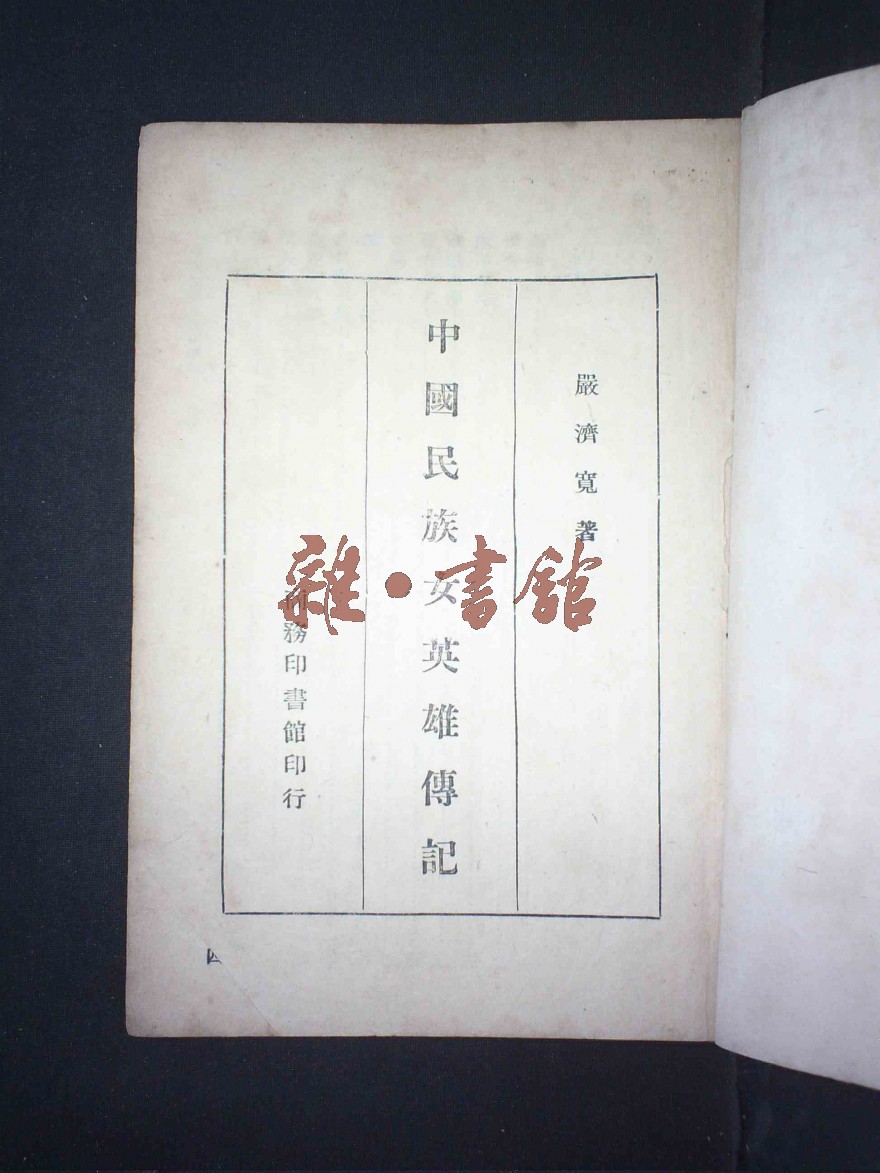 嚴濟寬著
中國民族女英雄傳記
商務印書館印行
雜·書館